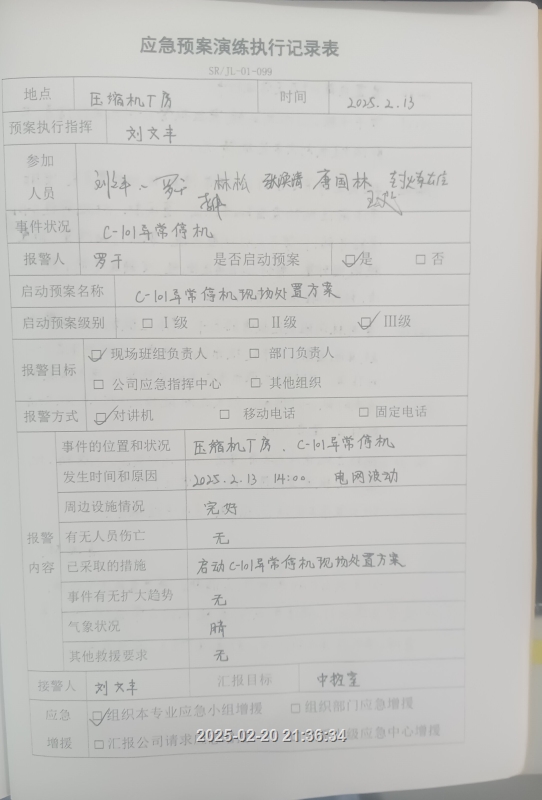 应急预案演练执行记录表
SR/JL-01-099
地点 压缩机厂房 时间 2025.2.13
预案执行指挥 刘文丰
参加人员 林松 唐国林
事件状况 C-101异常停机
报警人 罗干 是否启动预案 ☑是 □否
启动预案名称 C-101异常停机现场处置方案
启动预案级别 □ Ⅰ级 □ Ⅱ级 ☑ Ⅲ级
报警目标 ☑ 现场班组负责人 □ 部门负责人
□ 公司应急指挥中心 □ 其他组织
报警方式 ☑ 对讲机 □ 移动电话 □ 固定电话
报警内容
事件的位置和状况 压缩机厂房、C-101异常停机
发生时间和原因 2025.2.13 14:00 电网波动
周边设施情况 完好
有无人员伤亡 无
已采取的措施 启动C-101异常停机现场处置方案
事件有无扩大趋势 无
气象状况 晴
其他救援要求 无
接警人 刘文丰 汇报目标 中控室
应急增援 ☑组织本专业应急小组增援 □组织部门应急增援
□汇报公司请求 应急中心增援
2025-02-20 21:36:34